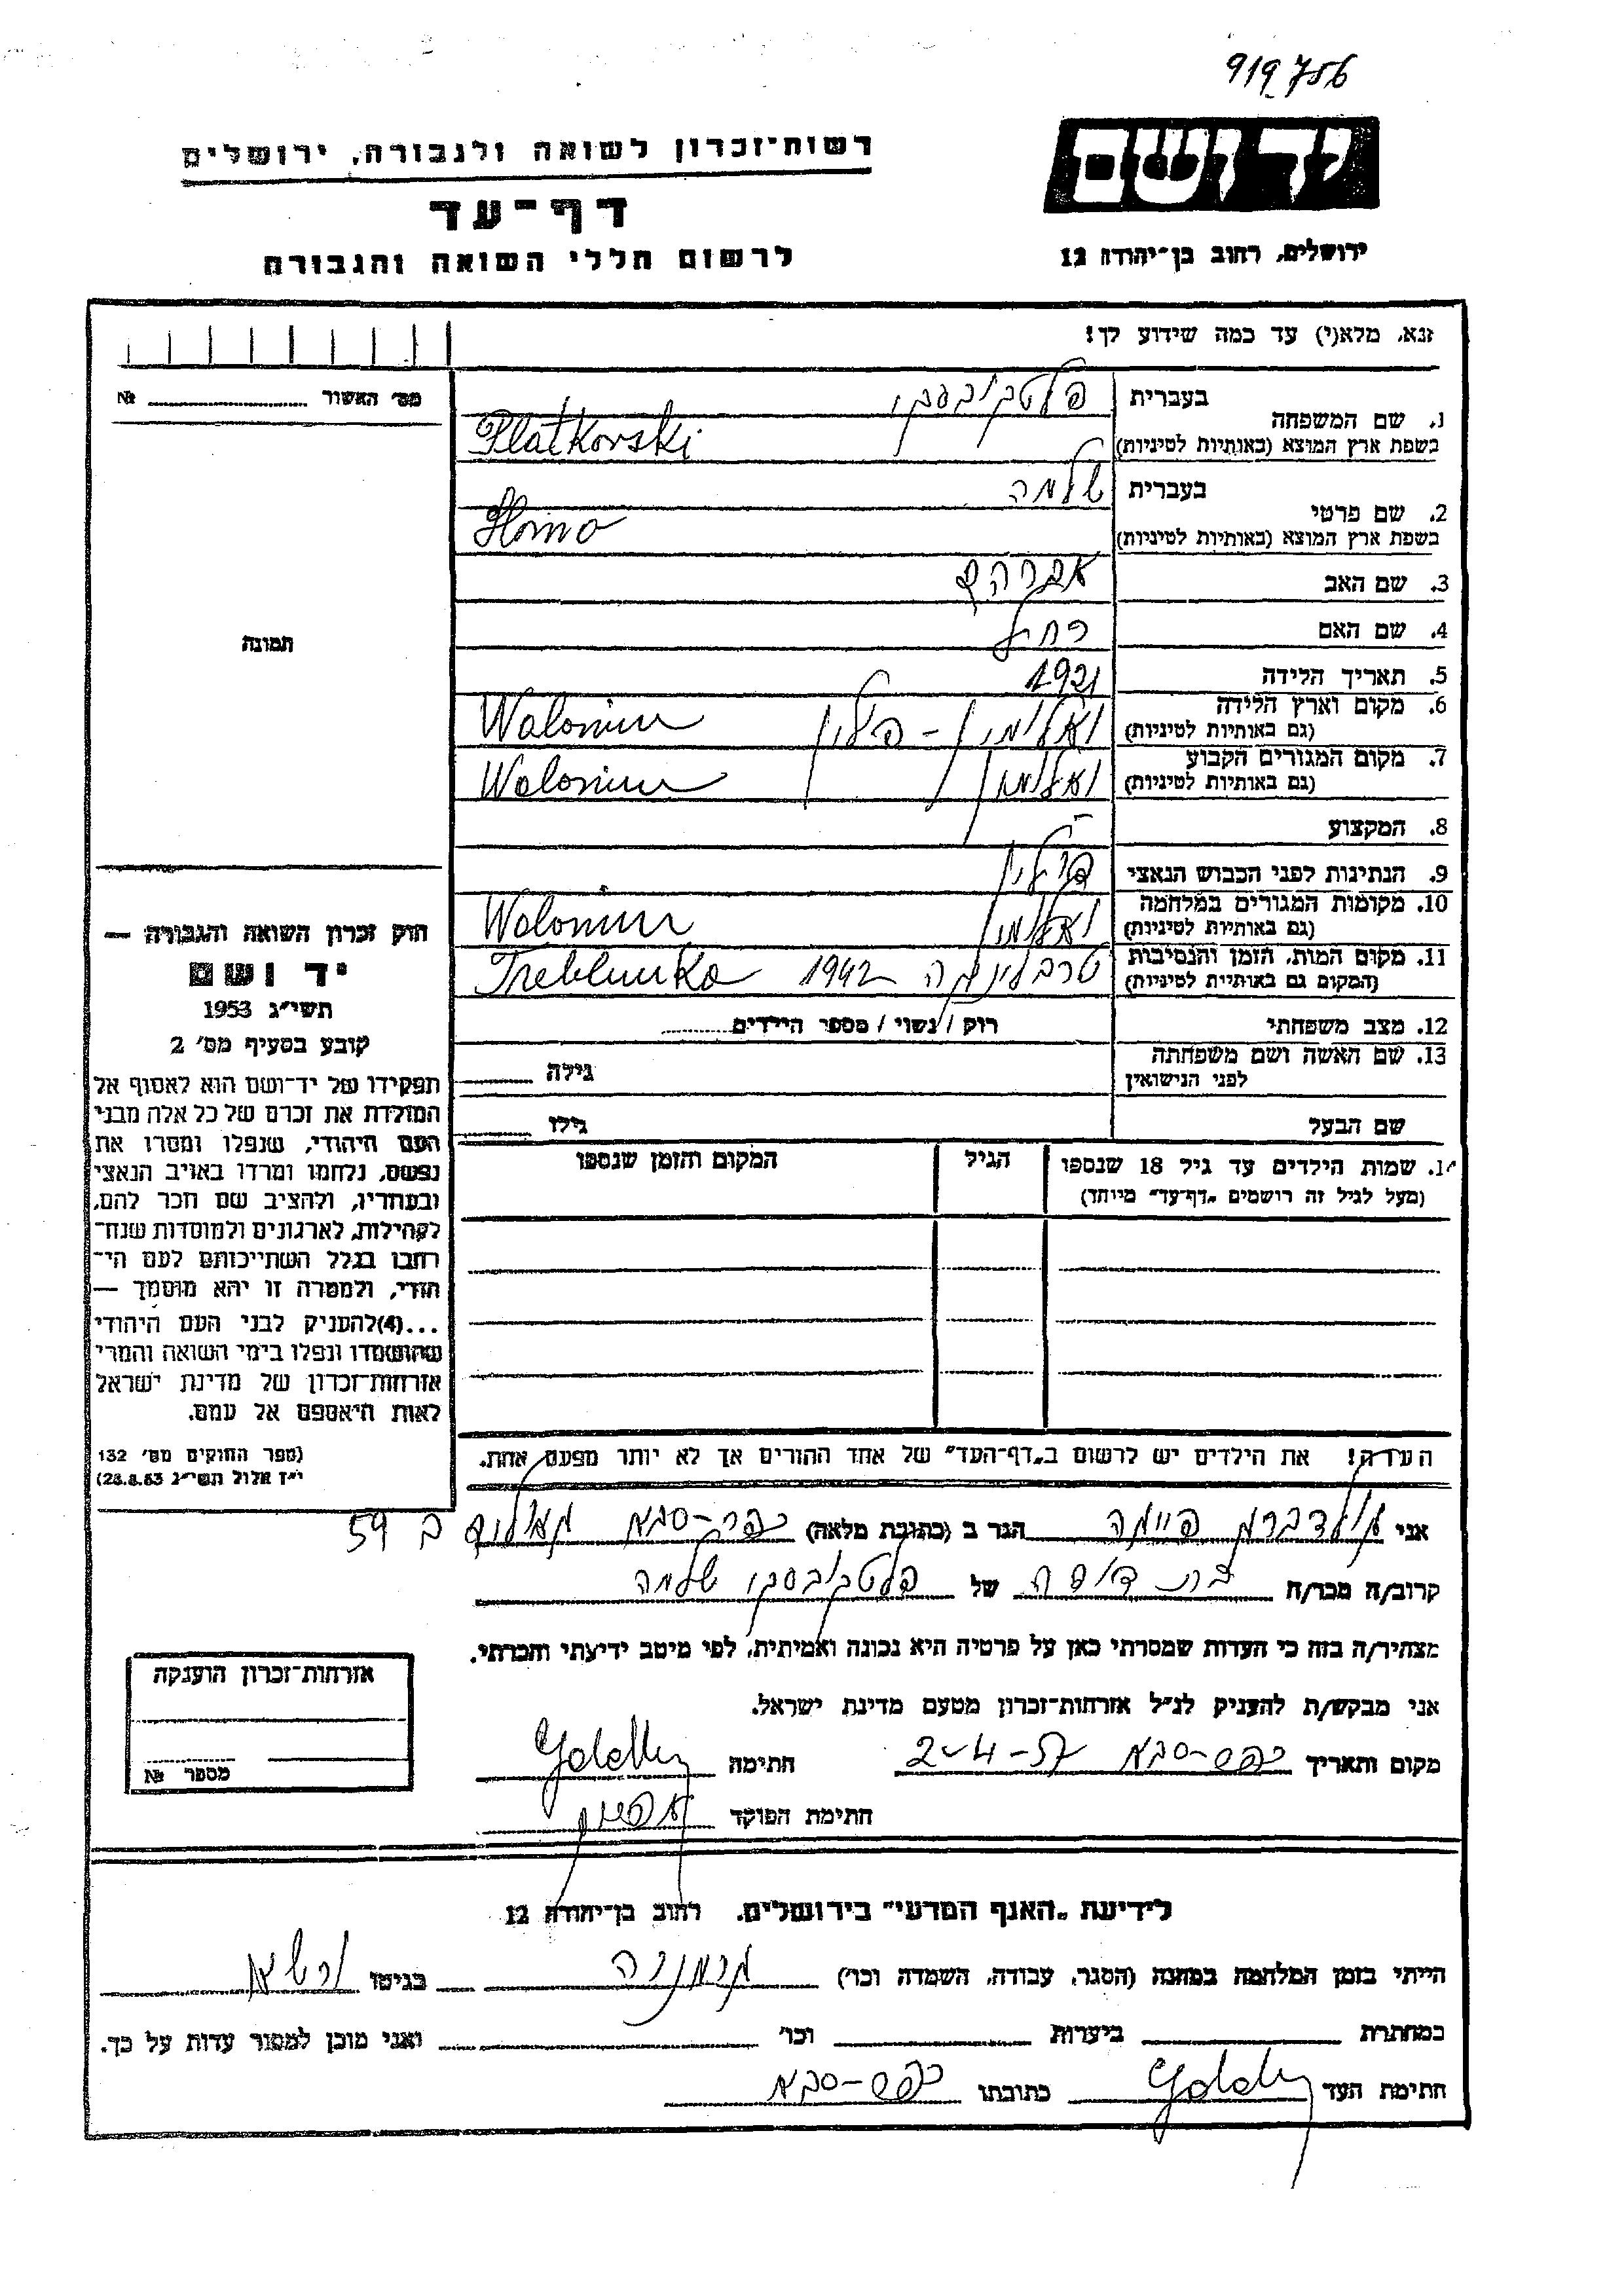 919756
יד ושם
רשות־זכרון לשואה ולגבורה, ירושלים
דף־עד
ירושלים, רחוב בן־יהודה 12
לרשום חללי השואה והגבורה
נא, מלא(י) עד כמה שידוע לך!
מס' האשור № 
1. שם המשפחה
בעברית פלטקובסקי
בשפת ארץ המוצא (באותיות לטיניות) Platkovski
2. שם פרטי
בעברית שלמה
בשפת ארץ המוצא (באותיות לטיניות)
3. שם האב אברהם
4. שם האם רחל
5. תאריך הלידה 1921
6. מקום וארץ הלידה ואלומין - פולין Wolomin
(גם באותיות לטיניות)
7. מקום המגורים הקבוע ואלומין Wolomin
(גם באותיות לטיניות)
8. המקצוע -
9. הנתינות לפני הכבוש הנאצי פולין
10. מקומות המגורים במלחמה ואלומין Wolomin
(גם באותיות לטיניות)
11. מקום המות, הזמן והנסיבות טרבלינקה 1942 Treblinka
(המקום גם באותיות לטיניות)
12. מצב משפחתי רווק / נשוי / מספר הילדים
13. שם האשה ושם משפחתה גילה
לפני הנישואין
שם הבעל גילו
14. שמות הילדים עד גיל 18 שנספו הגיל המקום והזמן שנספו
(מעל לגיל זה רושמים „דף־עד" מיוחד)
תמונה
חוק זכרון השואה והגבורה —
יד ושם
תשי"ג 1953
קובע בסעיף מס' 2
תפקידו של יד־ושם הוא לאסוף אל
המולדת את זכרם של כל אלה מבני
העם היהודי, שנפלו ומסרו את
נפשם, נלחמו ומרדו באויב הנאצי
ובעוזריו, ולהציב שם וזכר להם,
לקהילות, לארגונים ולמוסדות שנח־
רבו בגלל השתייכותם לעם הי־
הודי, ולמטרה זו יהא מוסמך —
...(4)להעניק לבני העם היהודי
שהושמדו ונפלו בימי השואה והמרי
אזרחות־זכרון של מדינת ישראל
לאות היאספם אל עמם.
(ספר החוקים מס' 132
י"ז אלול תשי"ג 28.8.53)
הערה! את הילדים יש לרשום ב„דף־העד" של אחד ההורים אך לא יותר מפעם אחת.
אני הגר ב (כתובת מלאה) כפר-סבא ב 59
קרוב/ה מכר/ה בת דודה של פלטקובסקי שלמה
מצהיר/ה בזה כי העדות שמסרתי כאן על פרטיה היא נכונה ואמיתית, לפי מיטב ידיעתי והכרתי.
אני מבקש/ת להעניק לנ"ל אזרחות־זכרון מטעם מדינת ישראל.
מקום ותאריך כפר-סבא 2-4-57 חתימה
חתימת הפוקד
אזרחות־זכרון הוענקה
מספר №
לידיעת „האגף המדעי" בירושלים, רחוב בן־יהודה 12
הייתי בזמן המלחמה במחנה (הסגר, עבודה, השמדה וכו') בגיטו ורשא
במחתרת ביערות וכו' ואני מוכן למסור עדות על כך.
חתימת העד כתובתו כפר-סבא